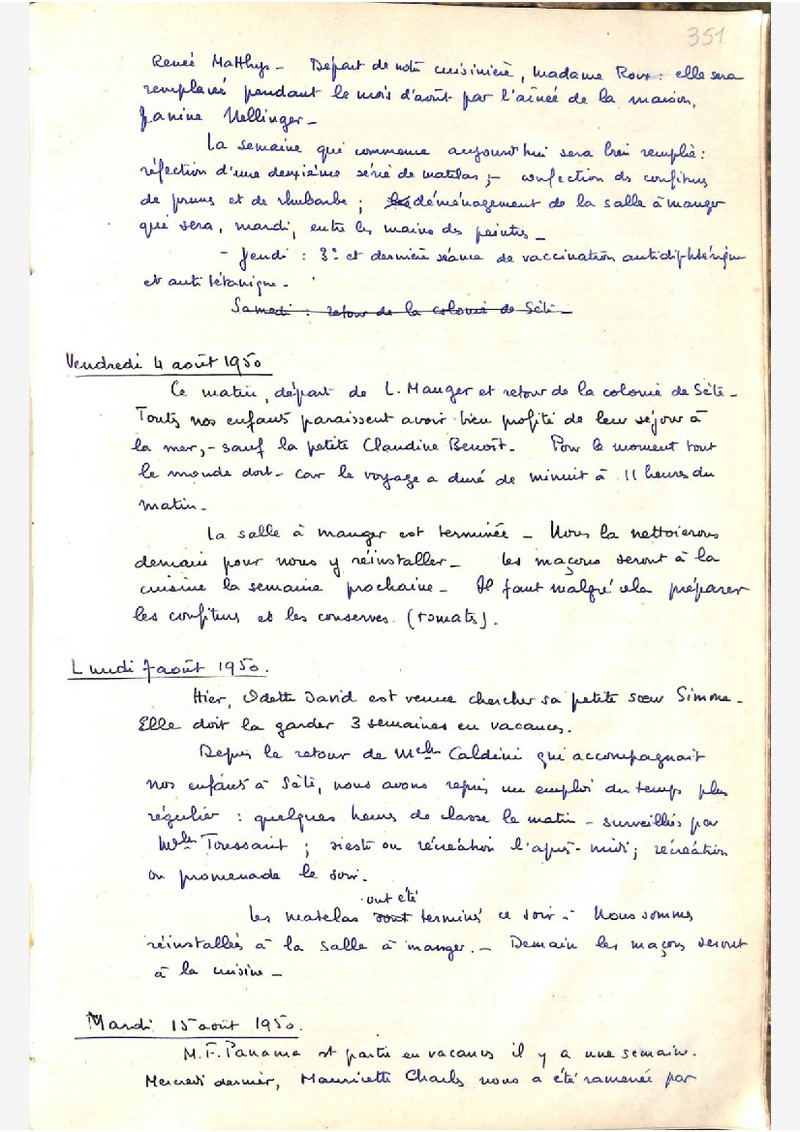 351
Renée Matthys - Départ de notre cuisinière, Madame Roux : elle sera
remplacée pendant le mois d'août par l'aînée de la maison,
Janine Nellinger -
La semaine qui commence aujourd'hui sera bien remplie :
réfection d'une deuxième série de matelas ; - confection des confitures
de prunes et de rhubarbe ; déménagement de la salle à manger
qui sera, mardi, entre les mains des peintres -
- Jeudi : 3e et dernière séance de vaccination antidiphtérique
et antitétanique -
Samedi : retour de la colonie de Sète -
Vendredi 4 août 1950
Ce matin, départ de L. Mauger et retour de la colonie de Sète -
Toutes nos enfants paraissent avoir bien profité de leur séjour à
la mer, - sauf la petite Claudine Benoît - Pour le moment tout
le monde dort - car le voyage a duré de minuit à 11 heures du
matin -
La salle à manger est terminée - Nous la nettoierons
demain pour nous y réinstaller - Les maçons seront à la
cuisine la semaine prochaine - Il faut malgré cela préparer
les confitures et les conserves (tomates).
Lundi 7 août 1950.
Hier, Odette David est venue chercher sa petite sœur Simone -
Elle doit la garder 3 semaines en vacances.
Depuis le retour de Melle Caldini qui accompagnait
nos enfants à Sète, nous avons repris un emploi du temps plus
régulier : quelques heures de classe le matin - surveillées par
Melle Toussaint ; sieste ou récréation l'après-midi ; récréation
ou promenade le soir.
ont été
Les matelas sont terminés ce soir - Nous sommes
réinstallées à la salle à manger. - Demain les maçons seront
à la cuisine -
Mardi 15 août 1950.
M. F. Panama est partie en vacances il y a une semaine.
Mercredi dernier, Mauricette Charles nous a été ramenée par